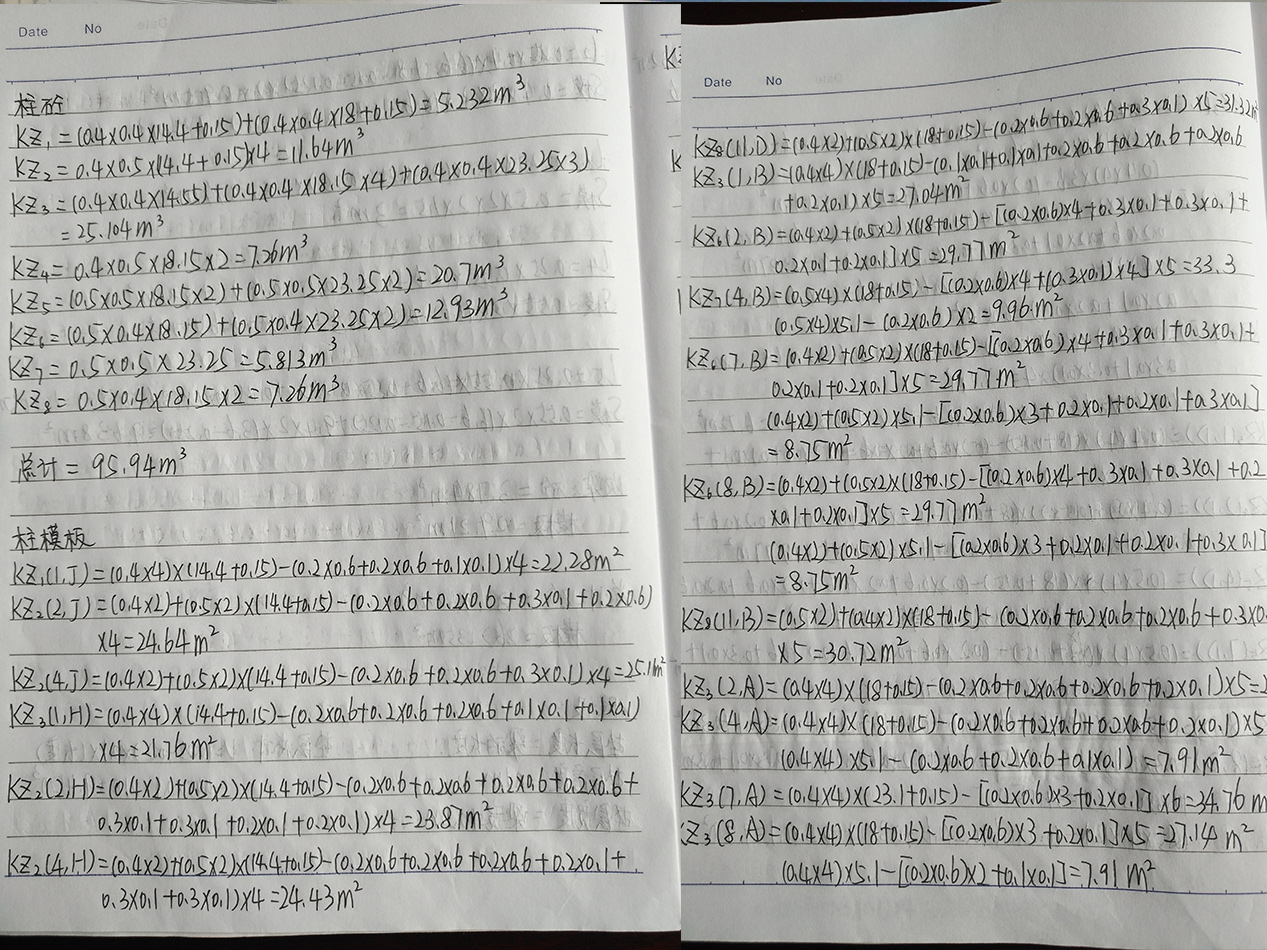 Date No
柱砼
KZ₁=(0.4×0.4×14.4+0.15)+(0.4×0.4×18+0.15)=5.232m³
KZ₂=0.4×0.5×(14.4+0.15)×4=11.64m³
KZ₃=(0.4×0.4×14.55)+(0.4×0.4×18.15×4)+(0.4×0.4×23.25×3)
=25.104m³
KZ₄=0.4×0.5×18.15×2=7.26m³
KZ₅=(0.5×0.5×18.15×2)+(0.5×0.5×23.25×2)=20.7m³
KZ₆=(0.5×0.4×18.15)+(0.5×0.4×23.25×2)=12.93m³
KZ₇=0.5×0.5×23.25=5.813m³
KZ₈=0.5×0.4×18.15×2=7.26m³
总计=95.94m³
柱模板
KZ₁(1,J)=(0.4×4)×(14.4+0.15)-(0.2×0.6+0.2×0.6+0.1×0.1)×4=22.28m²
KZ₂(2,J)=(0.4×2)+(0.5×2)×(14.4+0.15)-(0.2×0.6+0.2×0.6+0.3×0.1+0.2×0.6)
×4=24.64m²
KZ₂(4,J)=(0.4×2)+(0.5×2)×(14.4+0.15)-(0.2×0.6+0.2×0.6+0.3×0.1)×4=25.1m²
KZ₃(1,H)=(0.4×4)×(14.4+0.15)-(0.2×0.6+0.2×0.6+0.2×0.6+0.1×0.1+0.1×0.1)
×4=21.76m²
KZ₂(2,H)=(0.4×2)+(0.5×2)×(14.4+0.15)-(0.2×0.6+0.2×0.6+0.2×0.6+0.2×0.6+
0.3×0.1+0.3×0.1+0.2×0.1+0.2×0.1)×4=23.87m²
KZ₂(4,H)=(0.4×2)+(0.5×2)×(14.4+0.15)-(0.2×0.6+0.2×0.6+0.2×0.6+0.2×0.1+
0.3×0.1+0.3×0.1)×4=24.43m²
Date No
KZ₈(11,D)=(0.4×2)+(0.5×2)×(18+0.15)-(0.2×0.6+0.2×0.6+0.3×0.1)×5=31.32m²
KZ₃(1,B)=(0.4×4)×(18+0.15)-(0.1×0.1+0.1×0.1+0.2×0.6+0.2×0.6+0.2×0.6
+0.2×0.1)×5=27.04m²
KZ₆(2,B)=(0.4×2)+(0.5×2)×(18+0.15)-[(0.2×0.6)×4+0.3×0.1+0.3×0.1+
0.2×0.1+0.2×0.1]×5=29.77m²
KZ₇(4,B)=(0.5×4)×(18+0.15)-[(0.2×0.6)×4+(0.3×0.1)×4]×5=33.3
(0.5×4)×5.1-(0.2×0.6)×2=9.96m²
KZ₆(7,B)=(0.4×2)+(0.5×2)×(18+0.15)-[(0.2×0.6)×4+0.3×0.1+0.3×0.1+
0.2×0.1+0.2×0.1]×5=29.77m²
(0.4×2)+(0.5×2)×5.1-[(0.2×0.6)×3+0.2×0.1+0.2×0.1+0.3×0.1]
=8.75m²
KZ₆(8,B)=(0.4×2)+(0.5×2)×(18+0.15)-[(0.2×0.6)×4+0.3×0.1+0.3×0.1+0.2
×0.1+0.2×0.1]×5=29.77m²
(0.4×2)+(0.5×2)×5.1-[(0.2×0.6)×3+0.2×0.1+0.2×0.1+0.3×0.1]
=8.75m²
KZ₈(11,B)=(0.5×2)+(0.4×2)×(18+0.15)-(0.2×0.6+0.2×0.6+0.2×0.6+0.3×0.
×5=30.72m²
KZ₃(2,A)=(0.4×4)×(18+0.15)-(0.2×0.6+0.2×0.6+0.2×0.6+0.2×0.1)×5=2
KZ₃(4,A)=(0.4×4)×(18+0.15)-(0.2×0.6+0.2×0.6+0.2×0.6+0.2×0.1)×5
(0.4×4)×5.1-(0.2×0.6+0.2×0.6+0.1×0.1)=7.91m²
KZ₃(7,A)=(0.4×4)×(23.1+0.15)-[(0.2×0.6)×3+0.2×0.1]×6=34.76m
KZ₃(8,A)=(0.4×4)×(18+0.15)-[(0.2×0.6)×3+0.2×0.1]×5=27.14m²
(0.4×4)×5.1-[(0.2×0.6)×2+0.1×0.1]=7.91m²